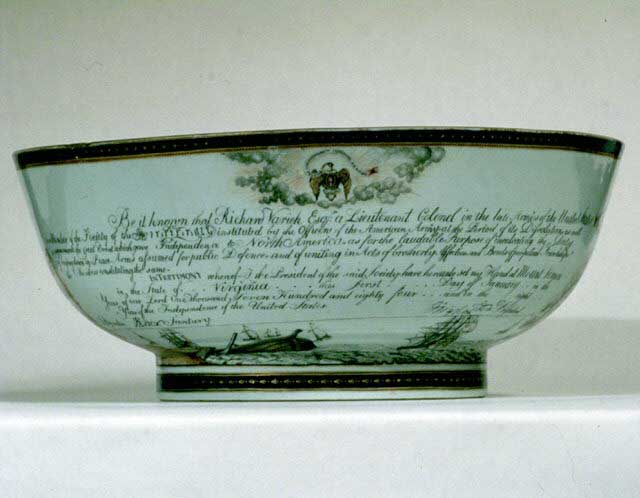 Be it known that Richard Varick Esqr. a Lieutenant Colonel in the late Army of the United States
of the Society of the Cincinnati instituted by the Officers of the American Army at the Period of its Dissolution as well
to commemorate the great Event which gave Independence to North America as for the laudable Purpose of
Arms assumed for public Defence and of uniting in Acts of brotherly Affection and Bonds of perpetual Friendship
constituting the same
IN TESTIMONY whereof I the President of the said Society have hereunto set my Hand at Mount Vernon
in the State of Virginia this first Day of January in the
Year of our Lord One thousand Seven Hundred and eighty four and in the eight
Year of the Independence of the United States
Knox Secretary